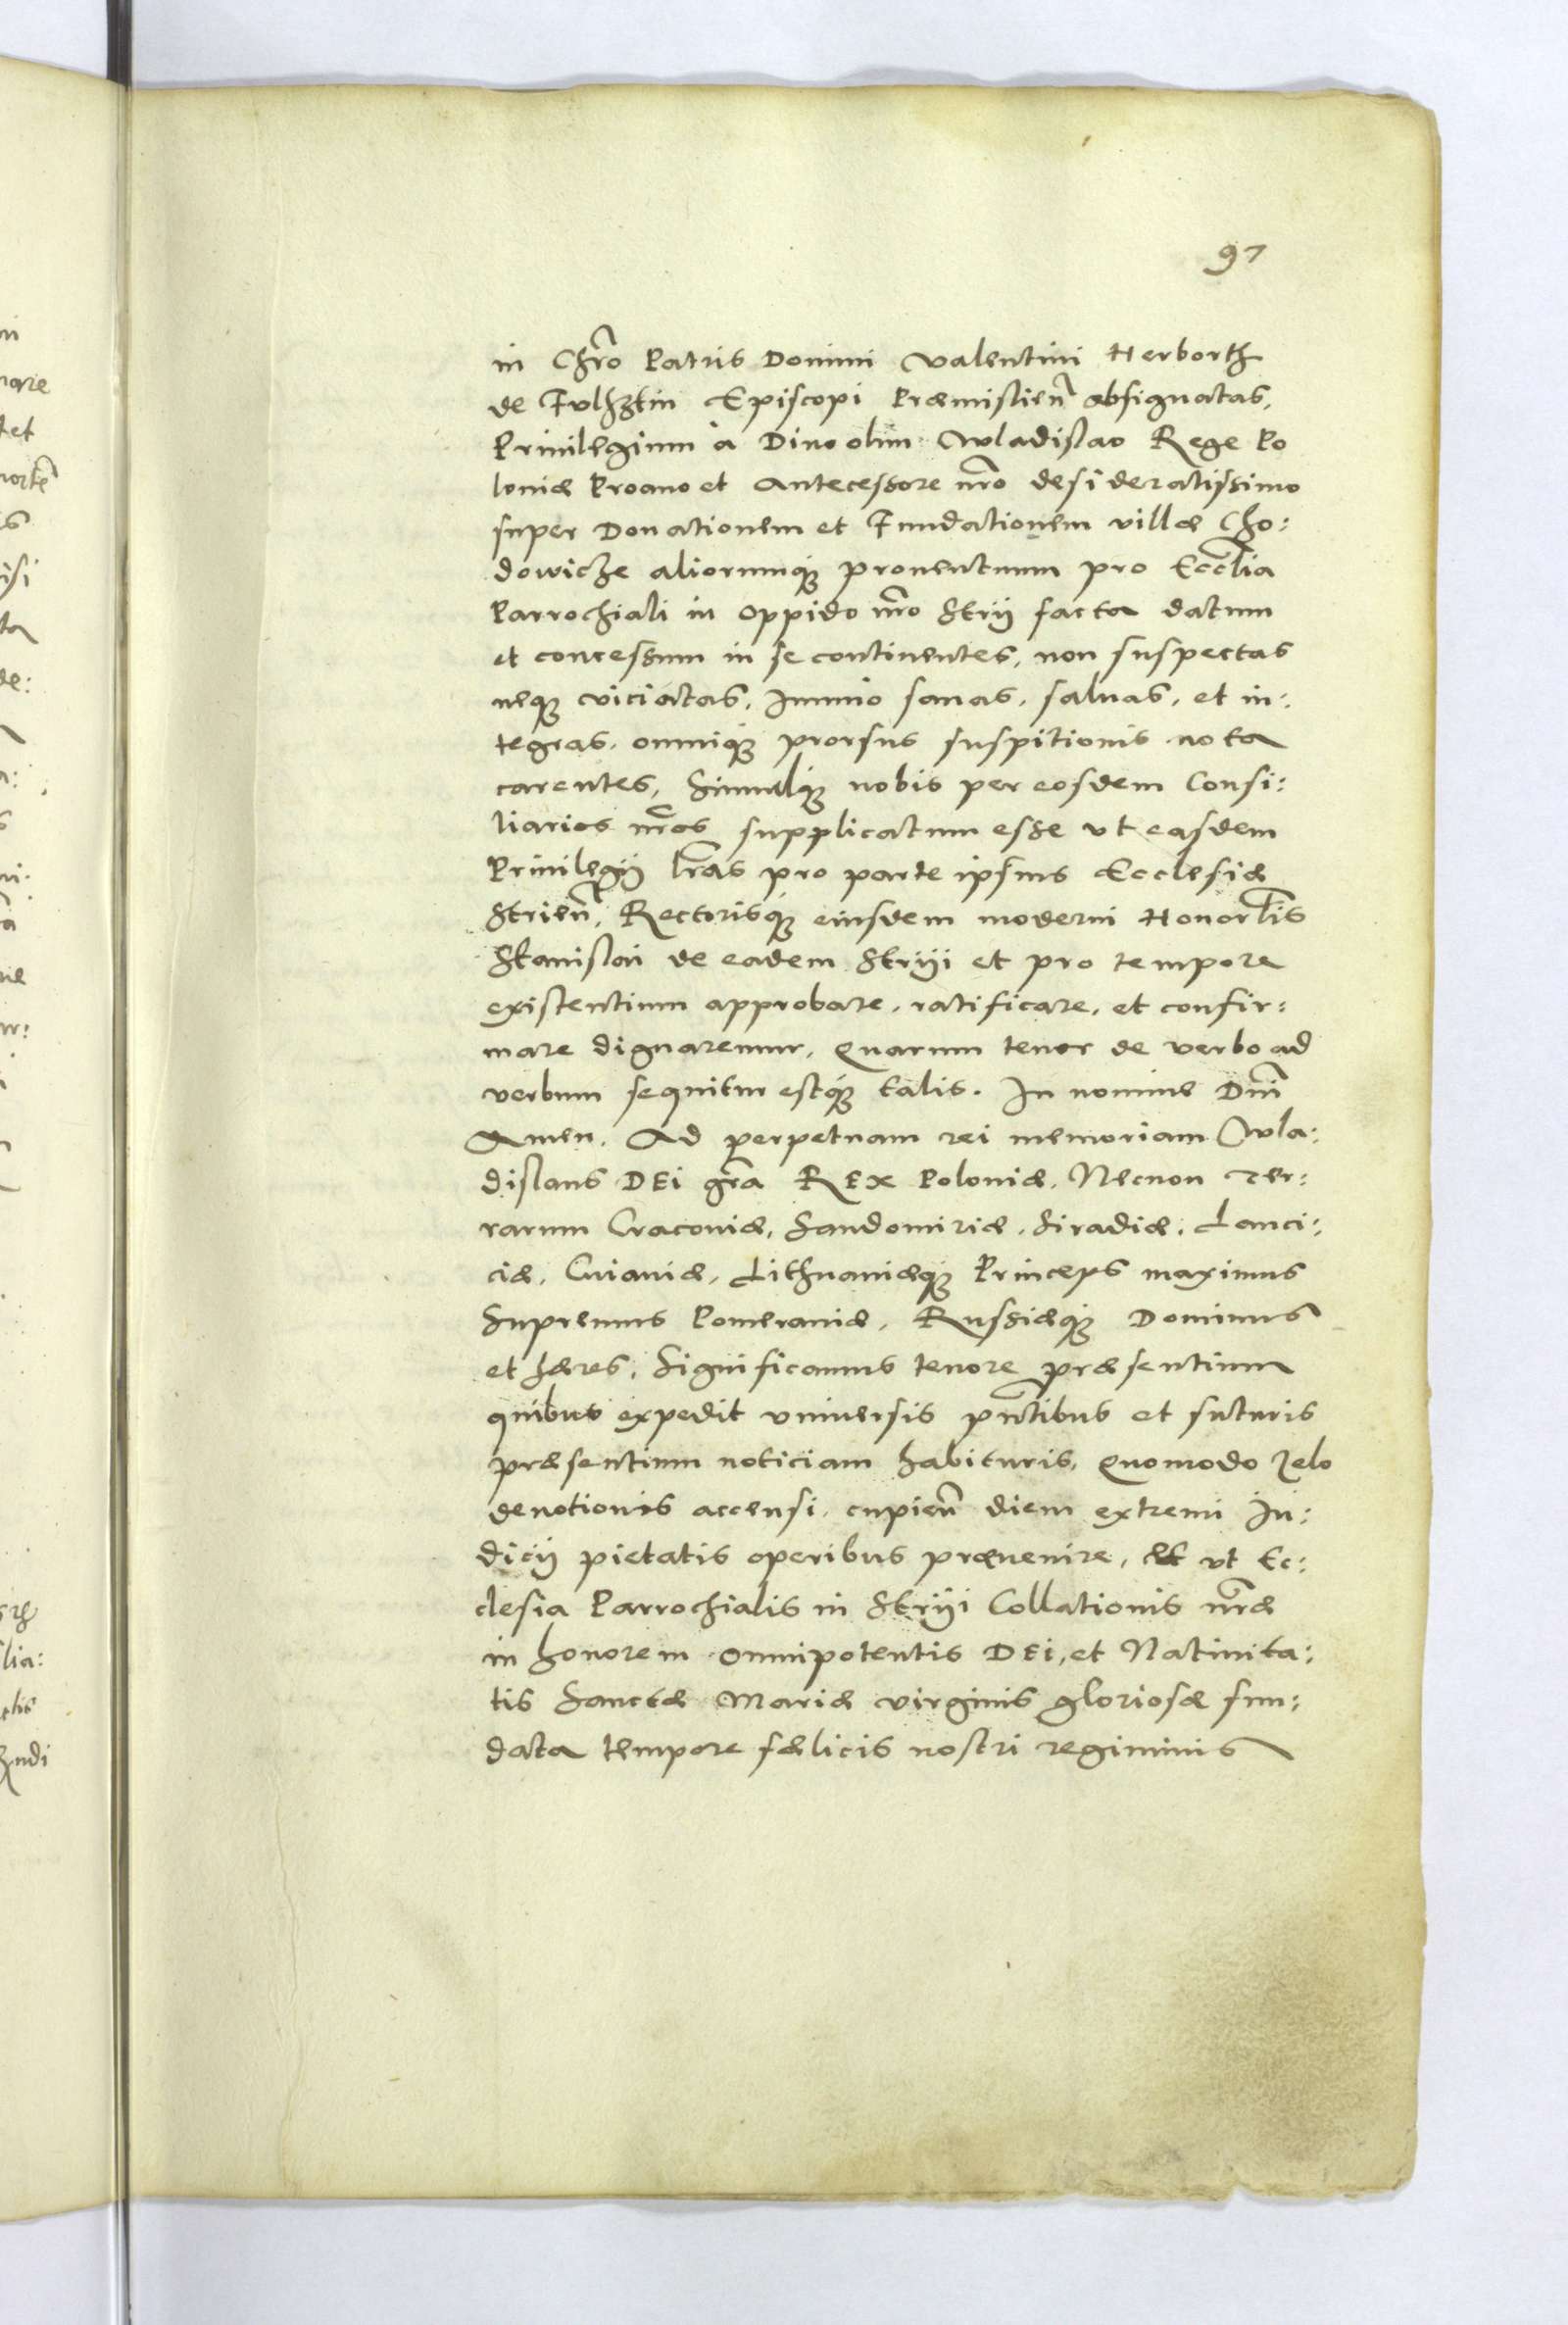 97
in Chr̃o Patris Domini Valentini Herborth
de Fulsztin Episcopi Præmislieñ obsignatas,
Priuilegium à Diuo olim Wladislao Rege Po
loniæ Proauo et Antecessore nr̃o desideratissimo
super Donationem et Fundationem villæ Cho:
dowicze aliorumq́ꝫ prouentuum pro Eccl̃ia
Parrochiali in oppido nr̃o Strij facta datum
et concessum in se continentes, non suspectas
neqꝫ viciatas, Immo sanas, saluas, et in:
tegras, omniq́ꝫ prorsus suspitionis nota
carentes, Simulq́ꝫ nobis per eosdem Consi:
liarios nr̃os supplicatum esse vt easdem
Priuilegij lr̃as pro parte ipsius Ecclesiæ
Strieñ, Rectorisq́ꝫ eiusdem moderni Honorl̃is
Stanislai de eadem Stryi et pro tempore
existentium approbare, ratificare, et confir:
mare dignaremur, Quarum tenor de verbo ad
verbum sequitur estq́ꝫ talis. In nomine Dni̅
Amen. Ad perpetuam rei memoriam Wla:
dislaus DEI gr̃a REX Poloniæ, Necnon Ter:
rarum Cracouiæ, Sandomiriæ, Siradiæ, Lanci:
ciæ, Cuiauiæ, Lithuaniæq́ꝫ Princeps maximus
Supremus Pomeraniæ, Russiæq́ꝫ Dominus
et hæres, Significamus tenore præsentium
quibus expedit vniuersis pñtibus et futuris
præsentium noticiam habituris, Quomodo Zelo
deuotionis accensi, cupieñ diem extremi Iu:
dicij pietatis operibus præuenire, et vt Ec:
clesia Parrochialis in Stryi Collationis nr̃æ
in honorem omnipotentis DEI, et Natiuita:
tis Sanctæ Mariæ virginis gloriosæ fun:
data tempore fælicis nostri regiminis